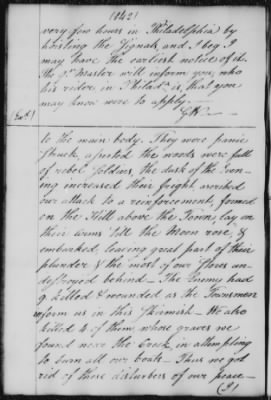 (842)
very few hours in Philadelphia by
hoisting the Signals, and I beg I
may have the earliest notice of it.
The Qr. Master will inform you, who
his rider in Philada. is, that you
may know were to apply.—
to the main body. They were panic
struck, asserted the woods were full
of rebel Soldiers, the dusk of the Even-
ing increased their fright, avoided
our attack to a reinforcement, formed
on the Hill above the Town, lay on
their arms till the Moon rose, &
embarked, leaving great part of their
plunder & the most of our Stores un-
destroyed behind— The Enemy had
9 killed & wounded as the Townsmen
inform us in this Skirmish— We also
killed 4 of them whose graves we
found near the Creek in attempting
to burn all our boats— Thus we got
rid of these disturbers of our peace—